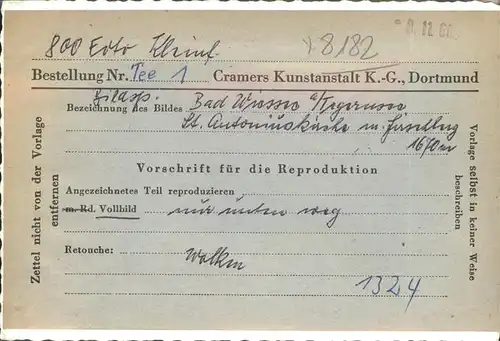 800 Foto
8182
Bestellung Nr. Tee 1 Cramers Kunstanstalt K.-G., Dortmund
Bezeichnung des Bildes Bad Wiessee a/Tegernsee
St. Antoniuskirche m. Hirschberg
1670 m
Vorschrift für die Reproduktion
Angezeichnetes Teil reproduzieren
m. Rd. Vollbild nur unten weg
Retouche: Wolken
1324
Zettel nicht von der Vorlage
entfernen
Vorlage selbst in keiner Weise
beschreiben